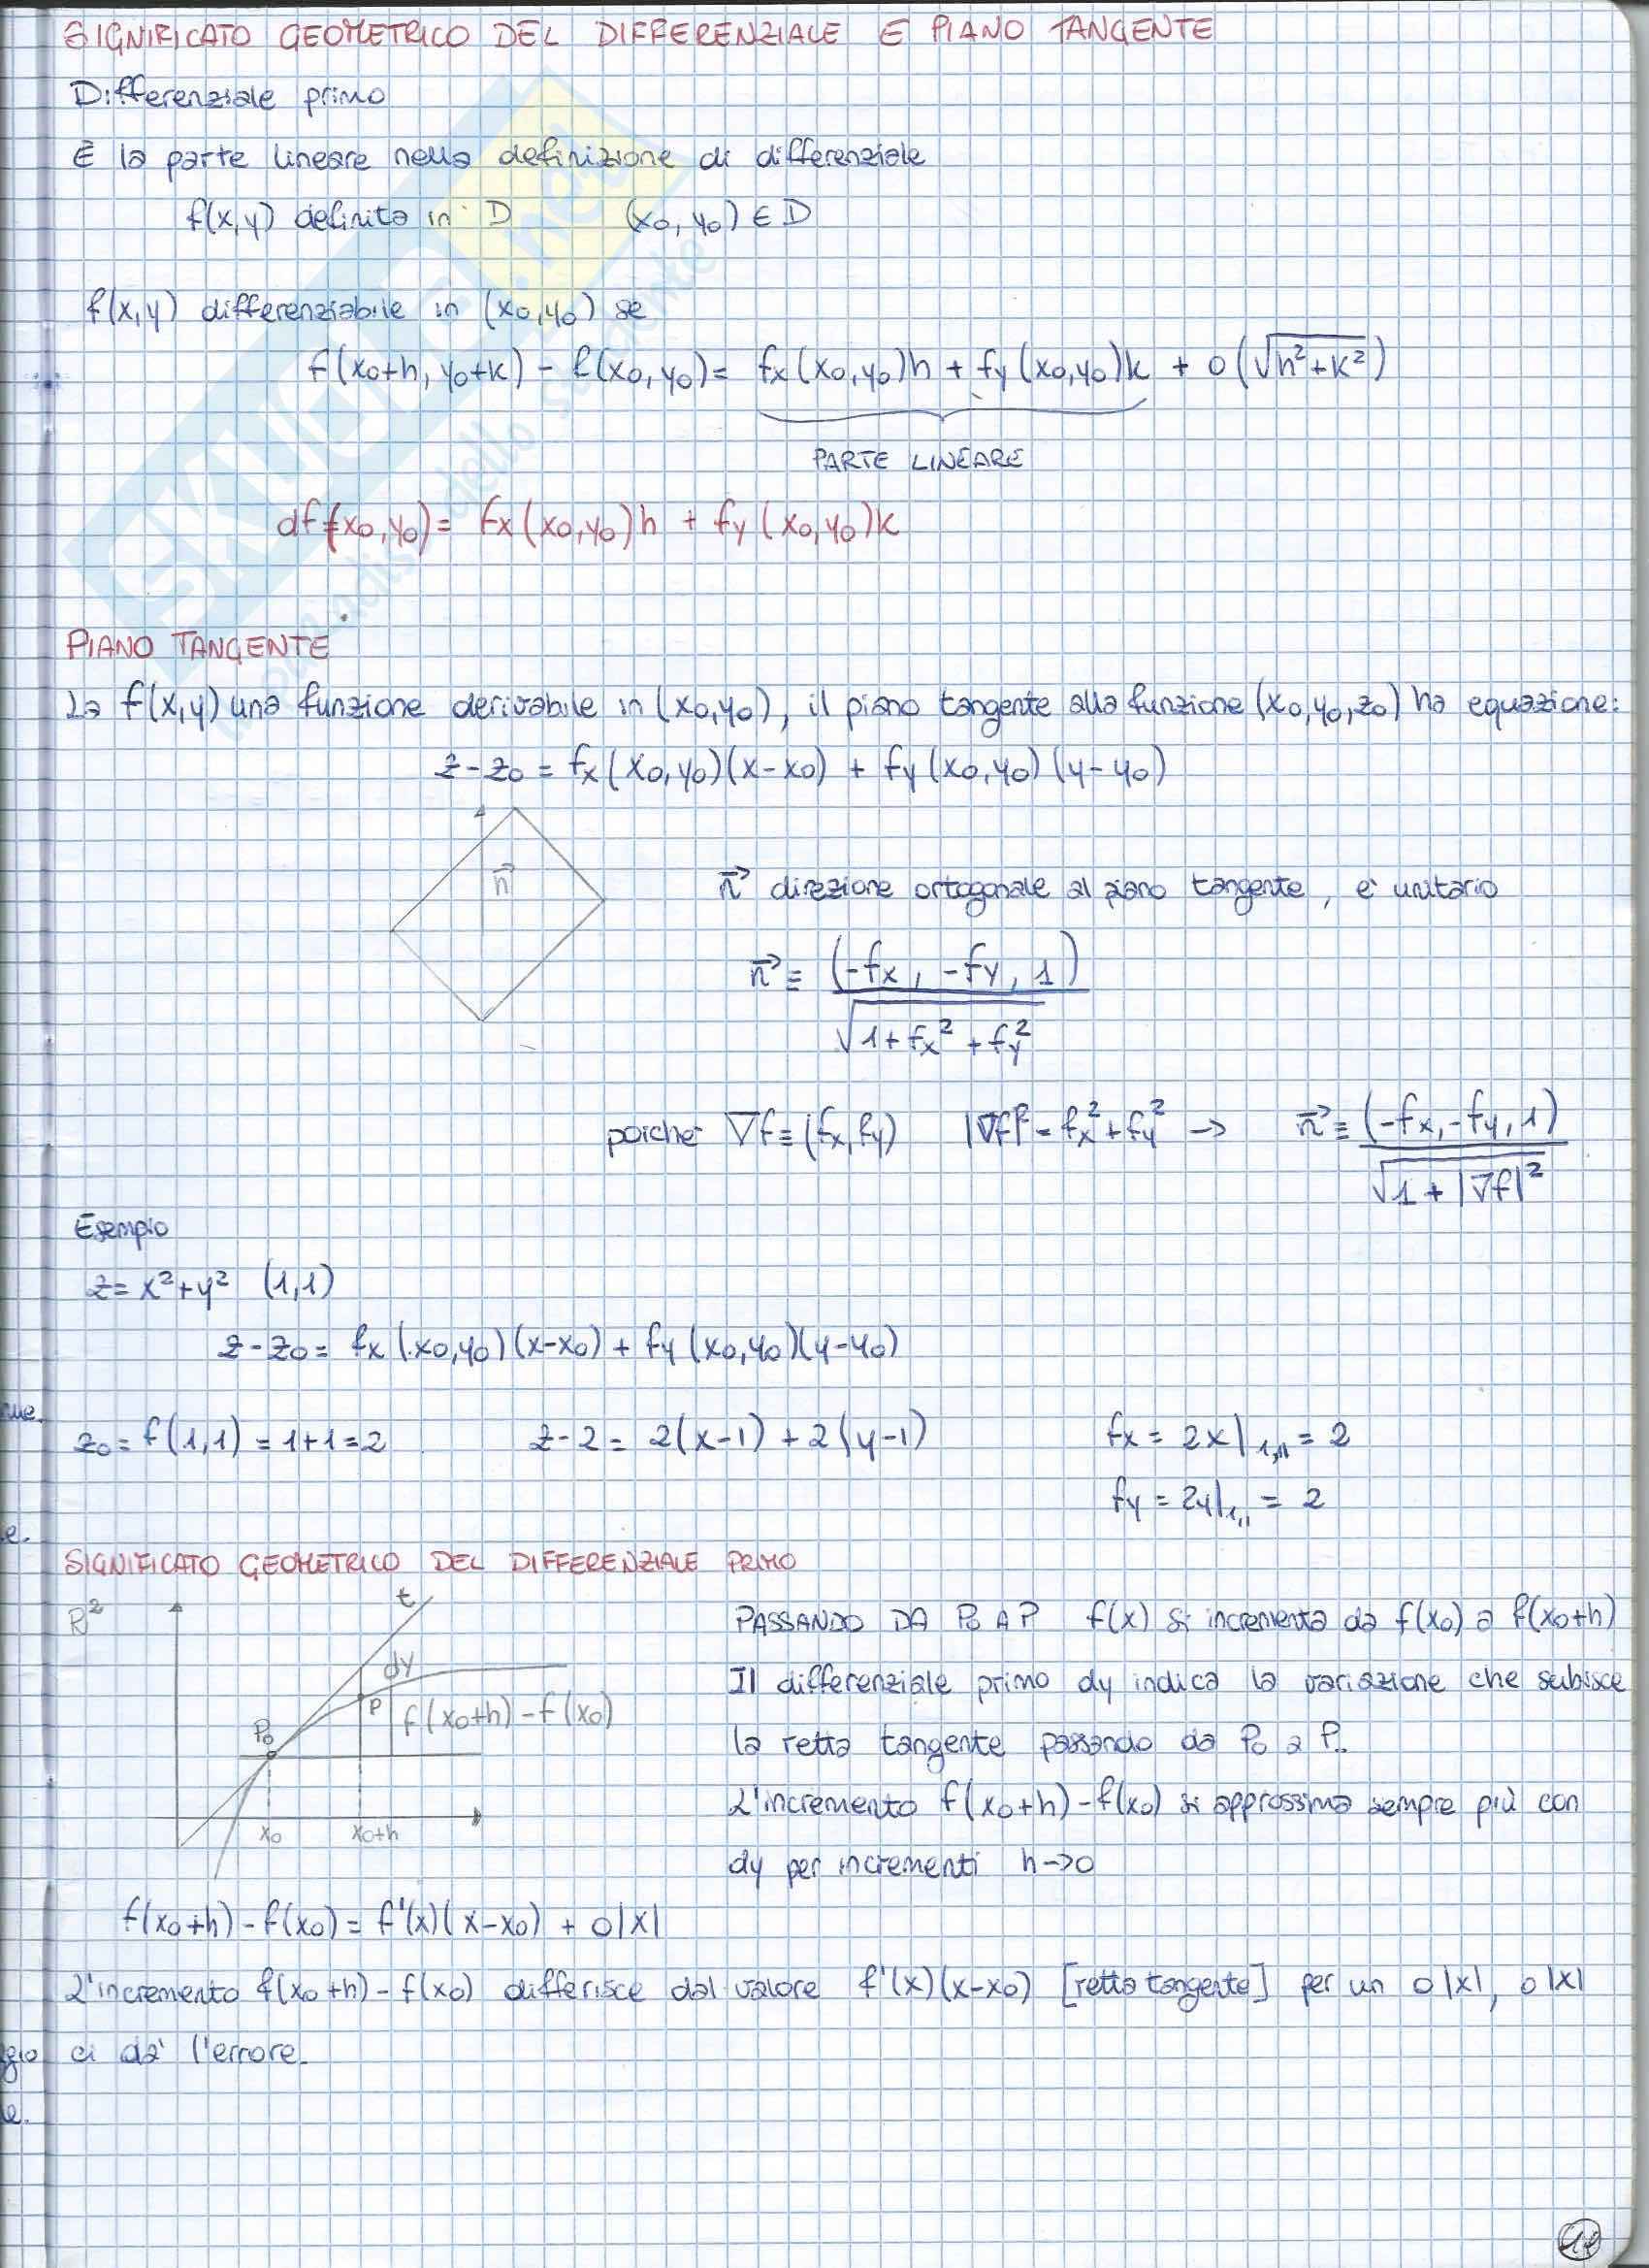 SIGNIFICATO GEOMETRICO DEL DIFFERENZIALE E PIANO TANGENTE
Differenziale primo
È la parte lineare nella definizione di differenziale
f(x,y) definita in D (x0, y0) ∈ D
f(x,y) differenziabile in (x0,y0) se
f(x0+h, y0+k) - f(x0,y0) = fx(x0,y0)h + fy(x0,y0)k + o(√h²+k²)
PARTE LINEARE
df(x0,y0) = fx(x0,y0)h + fy(x0,y0)k
PIANO TANGENTE
La f(x,y) una funzione derivabile in (x0,y0), il piano tangente alla funzione (x0,y0,z0) ha equazione:
z-z0 = fx(x0,y0)(x-x0) + fy(x0,y0)(y-y0)
n⃗
n⃗ direzione ortogonale al piano tangente, e' unitario
n⃗ ≡ (-fx, -fy, 1)
√1+fx²+fy²
poiche' ∇f ≡ (fx,fy) |∇f|² = fx²+fy² → n⃗ ≡ (-fx,-fy,1)
√1+|∇f|²
Esempio
z = x²+y² (1,1)
z-z0 = fx(x0,y0)(x-x0) + fy(x0,y0)(y-y0)
z0 = f(1,1) = 1+1 = 2 z-2 = 2(x-1)+2(y-1) fx = 2x|1,1 = 2
fy = 2y|1,1 = 2
SIGNIFICATO GEOMETRICO DEL DIFFERENZIALE PRIMO
R² t
dy
P0 P f(x0+h)-f(x0)
x0 x0+h
PASSANDO DA P0 A P f(x) si incrementa da f(x0) a f(x0+h)
Il differenziale primo dy indica la variazione che subisce
la retta tangente passando da P0 a P.
L'incremento f(x0+h)-f(x0) si approssima sempre più con
dy per incrementi h→0
f(x0+h)-f(x0) = f'(x)(x-x0) + o|x|
L'incremento f(x0+h)-f(x0) differisce dal valore f'(x)(x-x0) [retta tangente] per un o|x|, o|x|
ci da' l'errore.